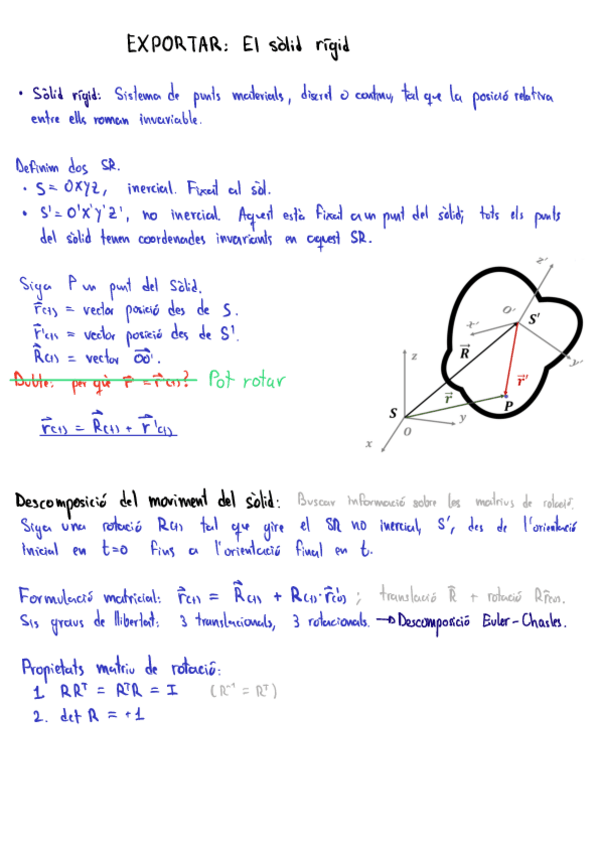 EXPORTAR: El sòlid rígid
• Sòlid rígid: Sistema de punts materials, discret o continu, tal que la posició relativa
entre ells roman invariable.
Definim dos SR.
• S = OXYZ, inercial. Fixat al sòl.
• S' = O'X'Y'Z', no inercial. Aquest està fixat a un punt del sòlid; tots els punts
del sòlid tenen coordenades invariants en aquest SR.
Siga P un punt del Sòlid.
r⃗(t) = vector posició des de S.
r⃗'(t) = vector posició des de S'.
R⃗(t) = vector OO'.
Dubte: per què r⃗ = r⃗'(t)? Pot rotar
r⃗(t) = R⃗(t) + r⃗'(t)
z'
O'
S'
x'
y'
R⃗
z
r⃗'
r⃗
P
S
y
O
x
Descomposició del moviment del sòlid: Buscar informació sobre les matrius de rotació.
Siga una rotació R(t) tal que gire el SR no inercial, S', des de l'orientació
inicial en t=0 fins a l'orientació final en t.
Formulació matricial: r⃗(t) = R⃗(t) + R(t)·r⃗'(0) ; translació R⃗ + rotació
Sis graus de llibertat: 3 translacionals, 3 rotacionals. → Descomposició Euler-Chasles.
Propietats matriu de rotació:
1. RRᵀ = RᵀR = I (R⁻¹ = Rᵀ)
2. det R = +1